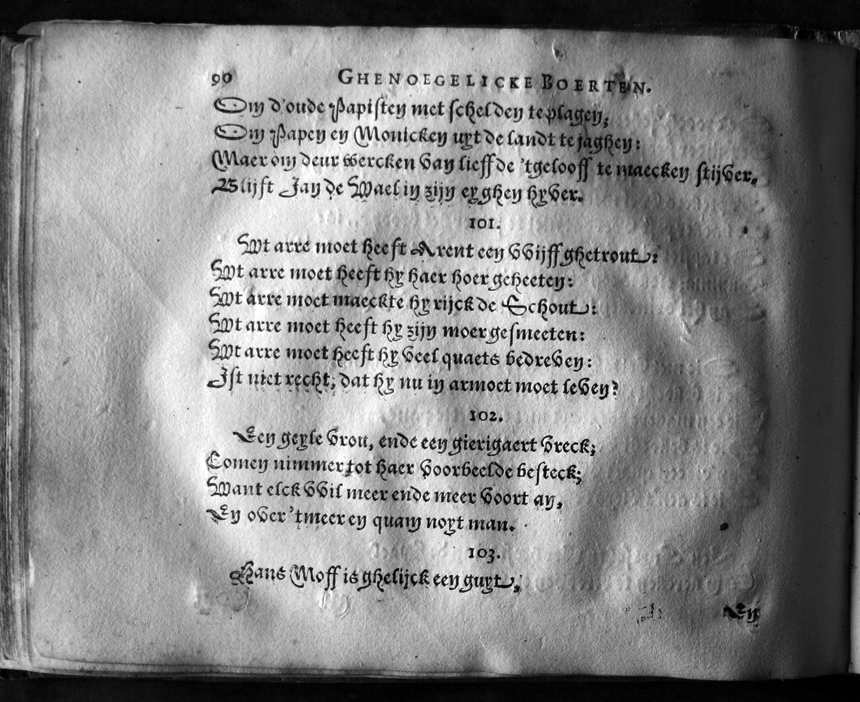 90 GHENOEGELICKE BOERTEN.
Om d'oude Papisten met schelden te plagen,
Om Papen en Monicken uyt de landt te jaghen:
Maer om deur wercken van lieffde 'tgelooff te maecken stijver,
Blijft Jan de Wael in zijn eyghen hyver.
101.
Wt arre moet heeft Arent een Wijff ghetrout:
Wt arre moet heeft hy haer hoer geheeten:
Wt arre moet maeckte hy rijck de Schout:
Wt arre moet heeft hy zijn moer gesmeeten:
Wt arre moet heeft hy veel quaets bedreven:
Ist niet recht, dat hy nu in armoet moet leven?
102.
Een geyle vrou, ende een gierigaert vreck;
Comen nimmer tot haer voorbeelde besteck;
Want elck wil meer ende meer voort an,
En over 'tmeer en quam noyt man.
103.
Hans Moff is ghelijck een guyt,
En